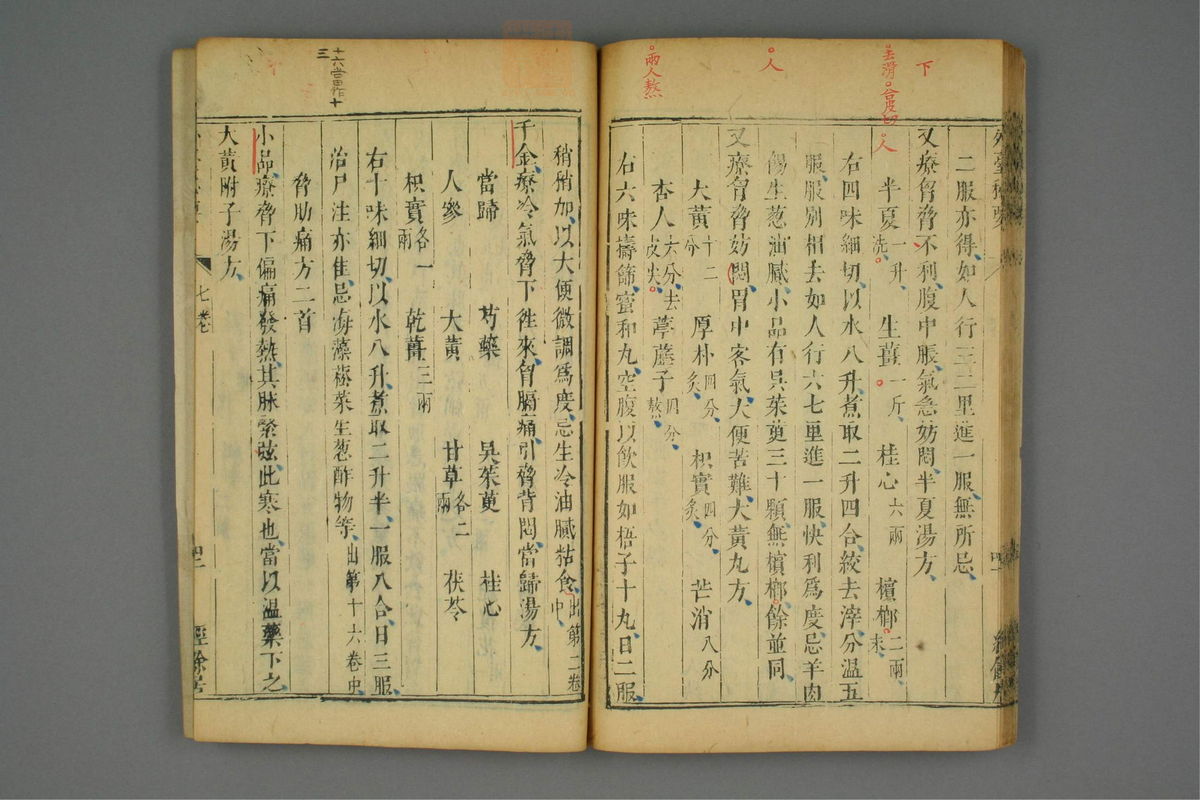 下
去滑○合皮切
人
人
○兩人熬
二服亦得、如人行三二里進一服、無所忌、
又療胷脅不利、腹中脹、氣急妨悶、半夏湯方、
人
半夏一升洗 生薑一斤、 桂心六兩 檳榔二兩、末、
右四味細切、以水八升、煮取二升四合、絞去滓、分溫五
服、服別相去如人行六七里進一服、快利為度、忌羊肉
餳生葱油膩、小品有吳茱萸三十顆、無檳榔、餘並同、
又療胷脅妨悶、胃中客氣、大便苦難、大黃丸方、
大黃十二分 厚朴四分、炙、 枳實四分、炙、 芒消八分
杏人六分、去皮尖 葶藶子四分、熬、
右六味擣篩、蜜和丸、空腹以飲服如梧子十九、日二服、
十六當作十三
稍稍加、以大便微調為度、忌生冷油膩粘食、出第二卷中、
千金、療冷氣脅下往來、胷膈痛引脅背悶、當歸湯方、
當歸 芍藥 吳茱萸 桂心
人參 大黃 甘草各二兩 茯苓
枳實各一兩 乾薑三兩
右十味細切、以水八升、煮取二升半、一服八合、日三服、
治尸注亦佳、忌海藻菘菜生葱酢物等、出第十六卷中
脅肋痛方二首
小品、療脅下偏痛發熱、其脉緊弦、此寒也、當以溫藥下之、
大黃附子湯方、
七卷
四二
經餘居